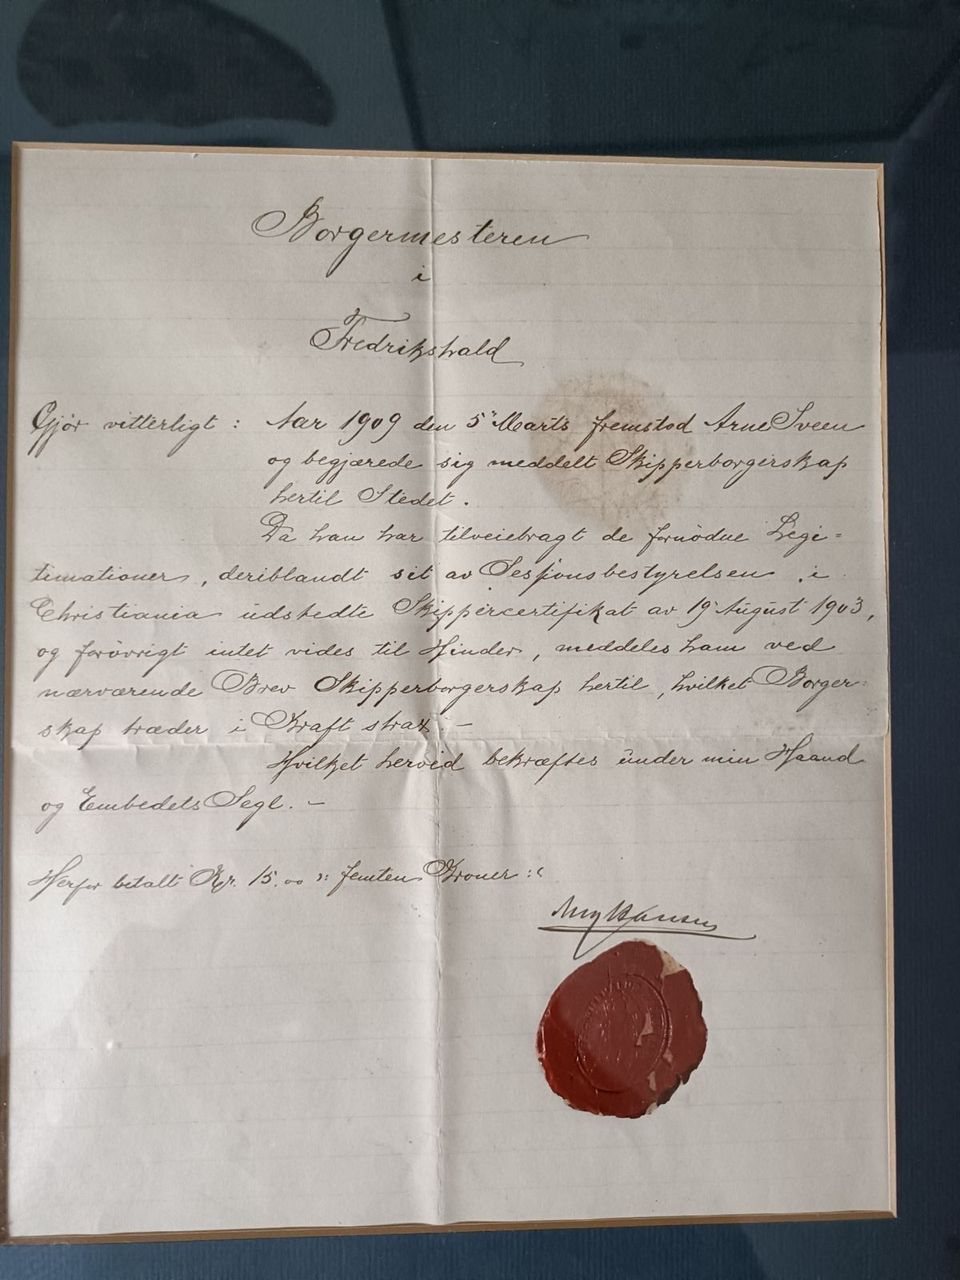 Borgermesteren
i
Fredrikshald
Gjør vitterligt : Aar 1909 den 5" Marts fremstod Arne Sveen
og begjærede sig meddelt Skipperborgerskap
hertil Stedet.
Da han har tilveiebragt de fornødne Legi=
timationer, deriblandt sit av Sesjonsbestyrelsen i
Christiania udstedte Skippercertifikat av 19 August 1903,
og forøvrigt intet vides til Hinder, meddeles ham ved
nærværende Brev Skipperborgerskap hertil, hvilket Borger=
skap træder i Kraft strax. —
Hvilket herved bekræftes under min Haand
og Embedets Segl. —
Herfor betalt Kr. 15.00 ɔ: femten Kroner :c
Hansen